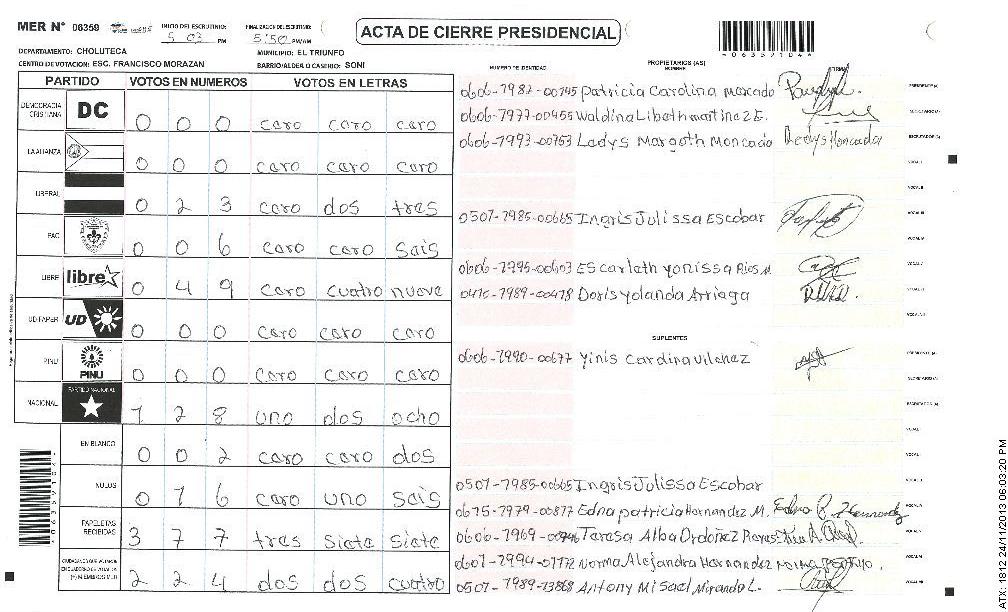 MER N° 06359
INICIO DEL ESCRUTINIO:
5 03 PM
FINALIZACION DEL ESCRUTINIO:
5:50 PM/AM
ACTA DE CIERRE PRESIDENCIAL
06359104
DEPARTAMENTO: CHOLUTECA
MUNICIPIO: EL TRIUNFO
CENTRO DE VOTACION: ESC. FRANCISCO MORAZAN
BARRIO/ALDEA O CASERIO: SONI
PARTIDO VOTOS EN NUMEROS VOTOS EN LETRAS
DEMOCRACIA CRISTIANA DC 0 0 0 caro caro caro
LA ALIANZA 0 0 0 caro caro caro
LIBERAL 0 2 3 caro dos tres
PAC 0 0 6 caro caro sais
LIBRE libre 0 4 9 caro cuatro nueve
UD-FAPER UD 0 0 0 caro caro caro
PINU PINU 0 0 0 caro caro caro
NACIONAL PARTIDO NACIONAL 1 2 8 uno dos ocho
EN BLANCO 0 0 2 caro caro dos
NULOS 0 1 6 caro uno sais
PAPELETAS RECIBIDAS 3 7 7 tres siete siete
2 2 4 dos dos cuatro
NUMERO DE IDENTIDAD
PROPIETARIOS (AS)
NOMBRE
FIRMA
0606-1982-00745 Patricia Carolina Moncado
PRESIDENTE (A)
0606-1977-00455 Waldina Libeth martinez E.
SECRETARIO (A)
0606-1993-00753 Ledys Margoth Moncado Ledys Moncada
ESCRUTADOR (A)
0507-1985-00665 Ingris Julissa Escobar
0606-1995-00603 EScarleth yonissa Rios M
0610-1989-00478 Doris yolanda Arriaga
SUPLENTES
0606-1990-00677 yinis Carolina vilchez
PRESIDENTE (A)
SECRETARIO (A)
ESCRUTADOR (A)
0507-1985-00665 Ingris Julissa Escobar
0615-1979-00877 Edna patricia Hernandez M.
0606-1969-00946 Teresa Alba Ordoñez
0601-1994-01772 Norma Alejandra Hernandez
0507-1989-13868 Antony Misael Miranda L.
06359104
ATX: 1812 24/11/2013 06:03:20 PM